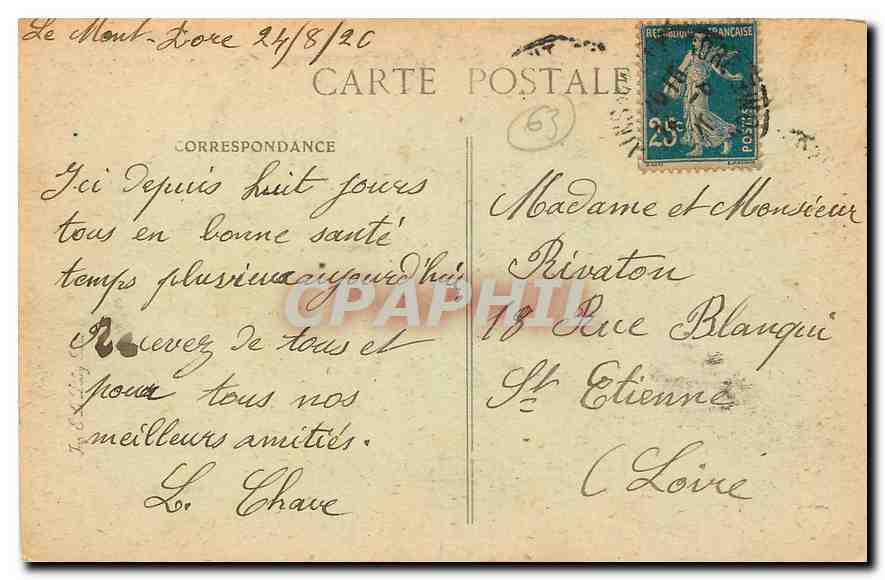 Le Mont-Dore 24/8/20
CARTE POSTALE
63
REPUBLIQUE FRANÇAISE
25c
POSTES
CORRESPONDANCE
Ici depuis huit jours
tous en bonne santé
temps pluvieux aujourd'hui,
Recevez de tous et
pour tous nos
meilleurs amitiés.
L. Chave
Madame et Monsieur
Rivaton
18 Rue Blanqui
St Etienne
(Loire
CPAPHIL